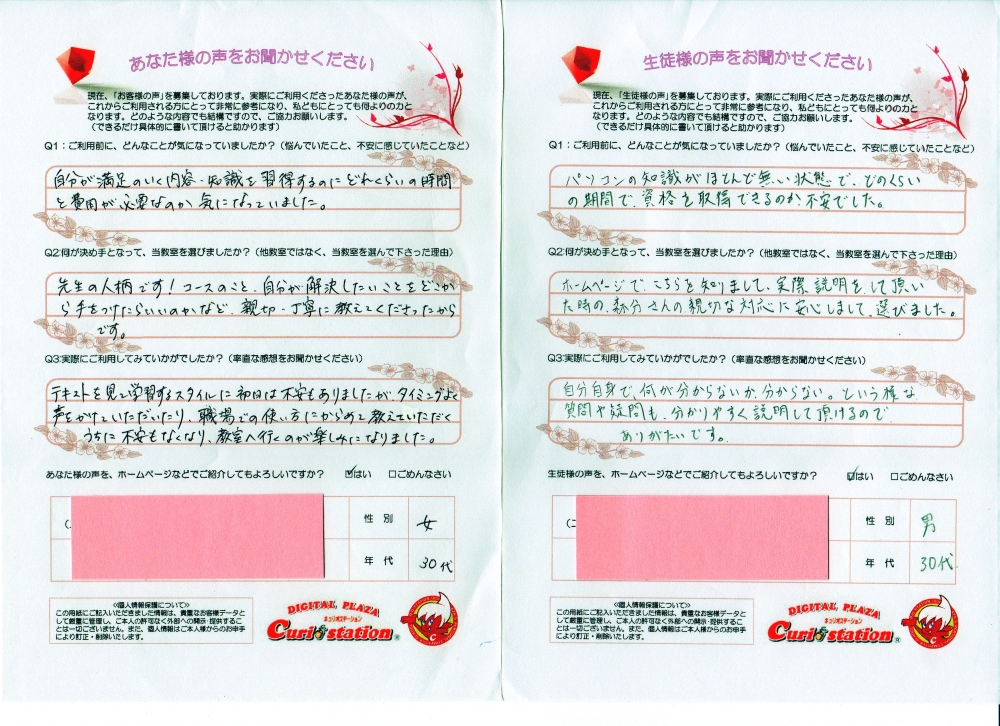 あなた様の声をお聞かせください
現在、「お客様の声」を募集しております。実際にご利用くださったあなた様の声が、
これからご利用される方にとって非常に参考になり、私どもにとっても何よりの力と
なります。どのような内容でも結構ですので、ご協力お願いします。
（できるだけ具体的に書いて頂けると助かります）
Q1：ご利用前に、どんなことが気になっていましたか？（悩んでいたこと、不安に感じていたことなど）
自分が満足のいく内容・知識を習得するのにどれくらいの時間
と費用が必要なのか気になっていました。
Q2:何が決め手となって、当教室を選びましたか？（他教室ではなく、当教室を選んで下さった理由）
先生の人柄です！コースのこと、自分が解決したいことをどこか
ら手をつけたらいいのかなど、親切・丁寧に教えてくださったから
です。
Q3:実際にご利用してみていかがでしたか？（率直な感想をお聞かせください）
テキストを見て学習するスタイルに初日は不安もありましたが、タイミングよく
声をかけていただいたり、職場での使い方にからめて教えていただく
うちに不安もなくなり、教室へ行くのが楽しみになりました。
あなた様の声を、ホームページなどでご紹介してもよろしいですか？ ☑はい □ごめんなさい
性別 女
年代 30代
≪個人情報保護について≫
この用紙にご記入いただきました情報は、貴重なお客様データと
して厳重に管理し、ご本人の許可なく外部への開示・提供するこ
とは一切ございません。また、個人情報はご本人様からのお申手
により訂正・削除いたします。
DIGITAL PLAZA
キュリオステーション
Curio station®
生徒様の声をお聞かせください
現在、「生徒様の声」を募集しております。実際にご利用くださったあなた様の声が、
これからご利用される方にとって非常に参考になり、私どもにとっても何よりの力と
なります。どのような内容でも結構ですので、ご協力お願いします。
（できるだけ具体的に書いて頂けると助かります）
Q1：ご利用前に、どんなことが気になっていましたか？（悩んでいたこと、不安に感じていたことなど）
パソコンの知識がほとんど無い状態で、どのくらい
の期間で、資格を取得できるのか不安でした。
Q2:何が決め手となって、当教室を選びましたか？（他教室ではなく、当教室を選んで下さった理由）
ホームページで、こちらを知りまして、実際、説明をして頂い
た時の、さんの親切な対応に安心しまして、選びました。
Q3:実際にご利用してみていかがでしたか？（率直な感想をお聞かせください）
自分自身で、何が分からないか、分からない。という様な
質問や疑問も、分かりやすく説明して頂けるので
ありがたいです。
生徒様の声を、ホームページなどでご紹介してもよろしいですか？ ☑はい □ごめんなさい
性別 男
年代 30代
≪個人情報保護について≫
この用紙にご記入いただきました情報は、貴重なお客様データと
して厳重に管理し、ご本人の許可なく外部への開示・提供するこ
とは一切ございません。また、個人情報はご本人様からのお申手
により訂正・削除いたします。
DIGITAL PLAZA
キュリオステーション
Curio station®